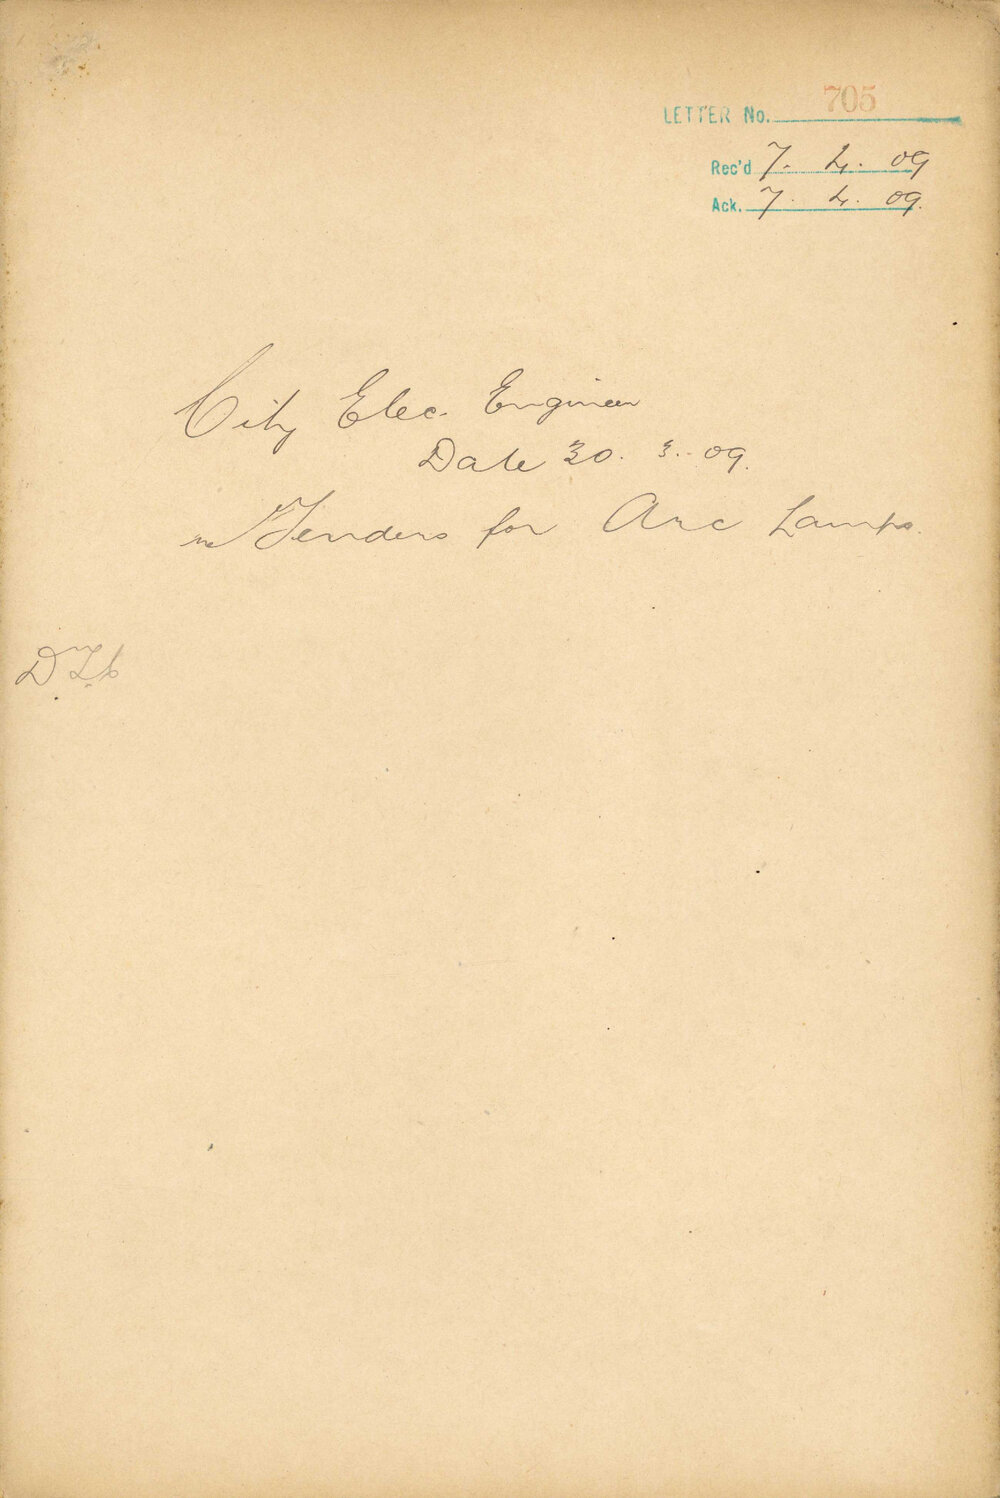 LETTER No. 705
Rec'd 7. 4. 09
Ack. 7. 4. 09.
City Elec. Engineer
Date 30. 3. 09.
re Tenders for Arc Lamps.